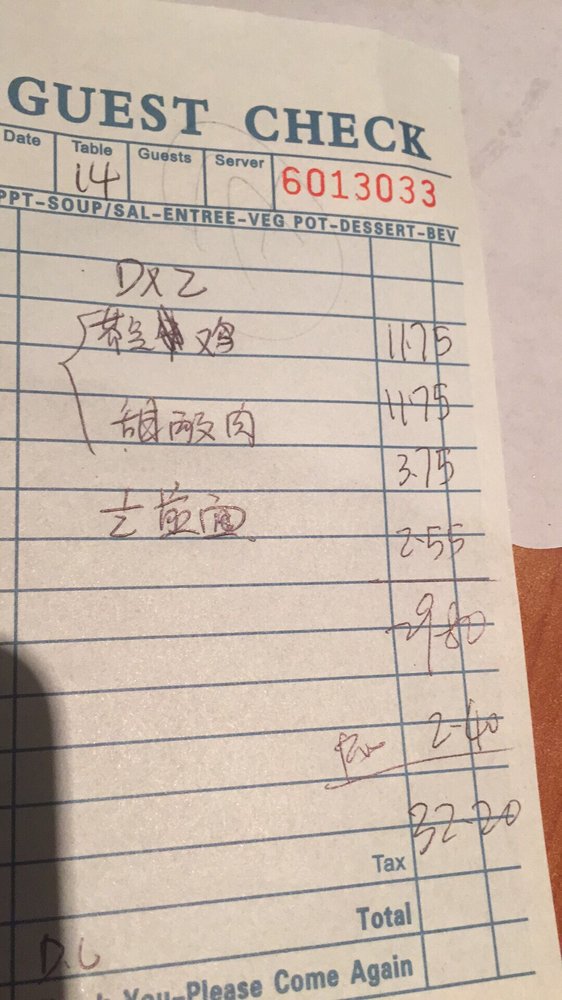 GUEST CHECK
Date Table Guests Server 6013033
14
PPT-SOUP/SAL-ENTREE-VEG POT-DESSERT-BEV
DX2
鸡 11.75
甜酸肉 11.75
3.75
½ 煎面 2-55
29-80
2-40
32-20
Tax
Total
D.L
You-Please Come Again